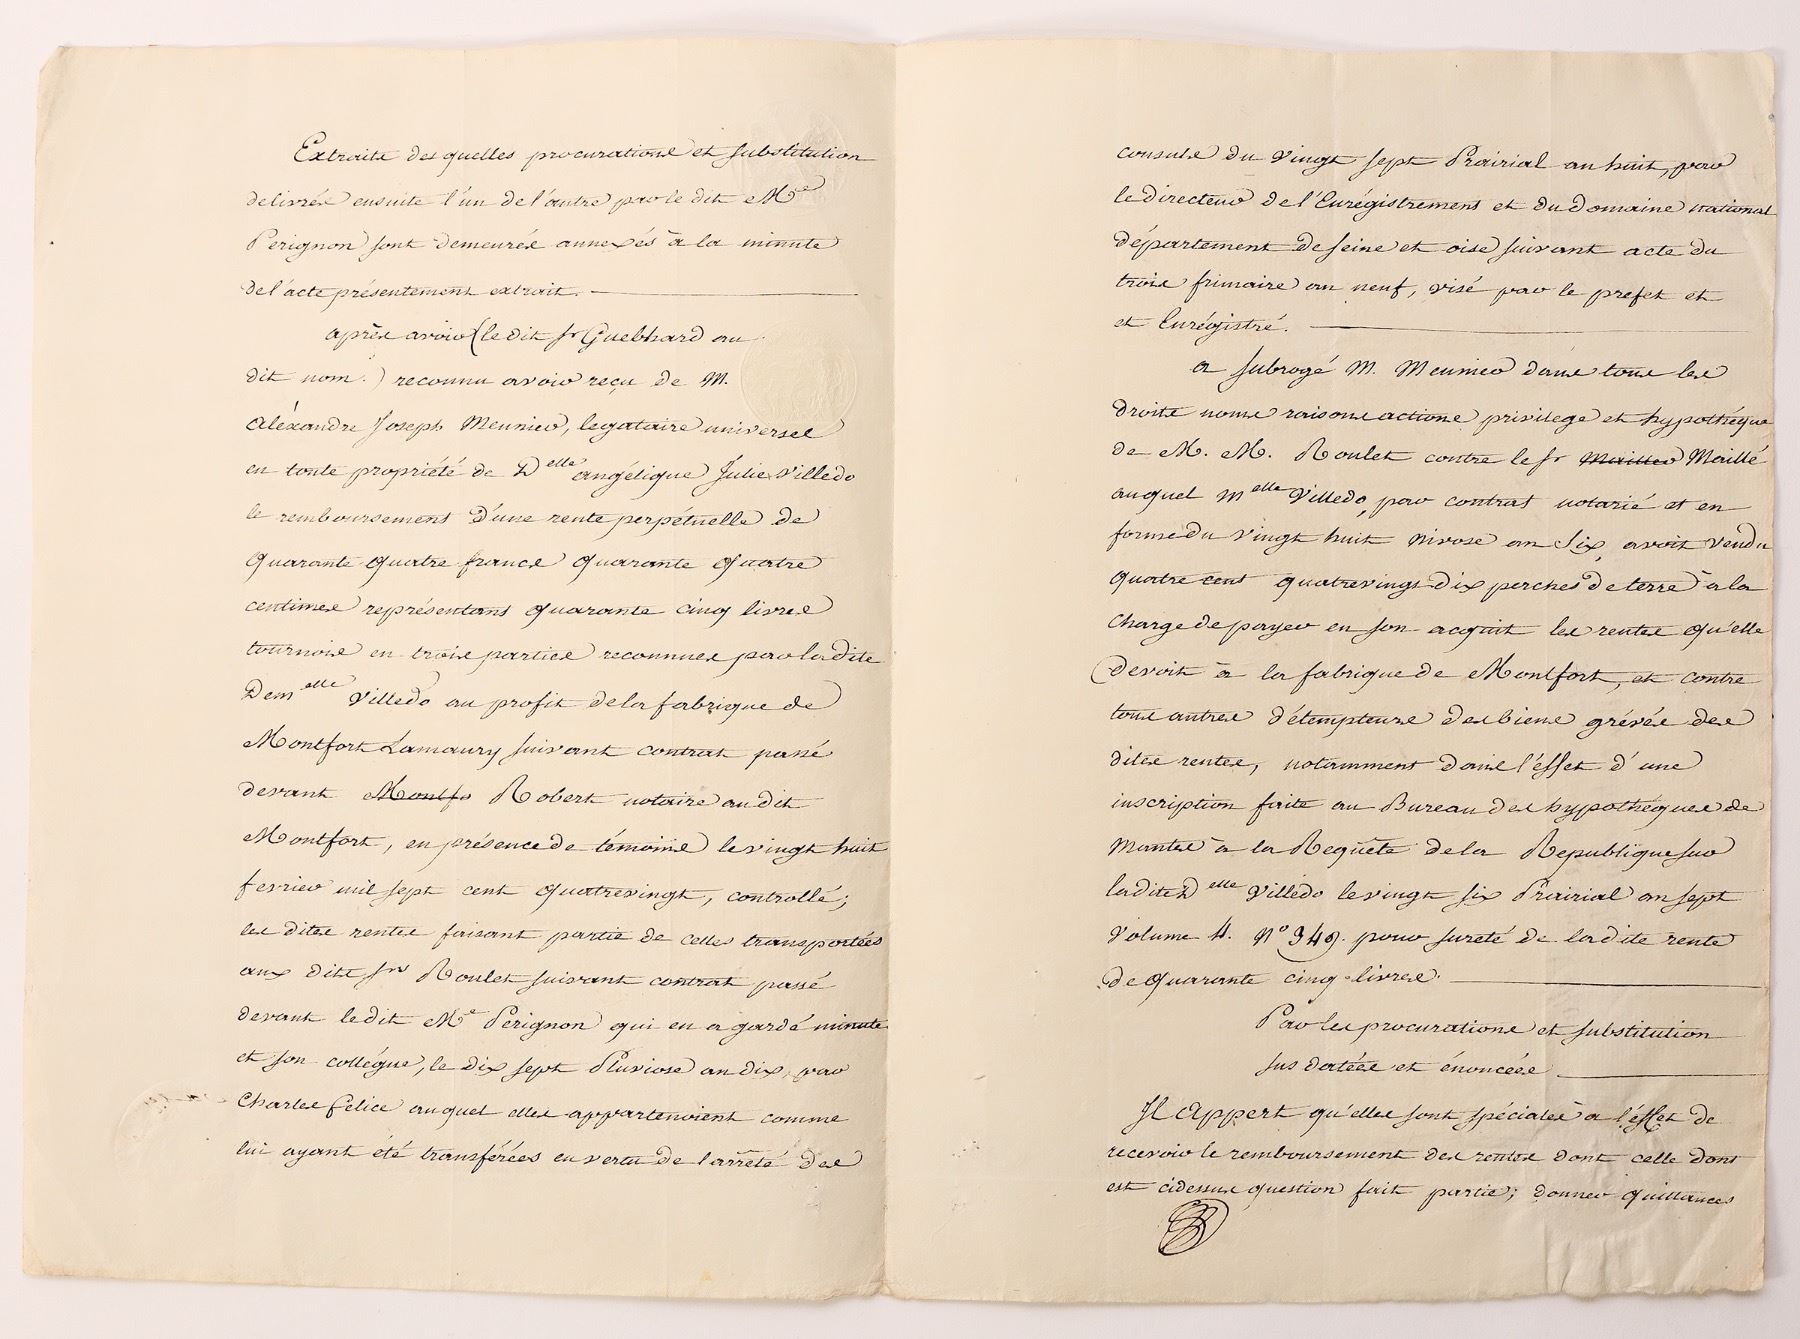 Extraits des quelles procurations et substitution
delivrés ensuite l'un de l'autre par le dit Me
Perignon sont demeurés annexés à la minute
de l'acte présentement extrait.
après avoir (le dit Sr Guebhard au
dit nom.) reconnu avoir reçu de M.
Aléxandre Joseph Meunier, legataire universel
en toute propriété de Delle angélique Julie Villedo
le remboursement d'une rente perpétuelle de
quarante quatre francs quarante quatre
centimes représentans quarante cinq livres
tournois en trois parties reconnues par la dite
Demelle Villedo au profit de la fabrique de
Montfort Lamaury suivant contrat passé
devant Montfo Robert notaire au dit
Montfort, en présence de témoins le vingt huit
fevrier mil sept cent quatrevingt, controllé;
les dites rentes faisant partie de celles transportées
aux dits Srs Roulet suivant contrat passé
devant le dit Me Perignon qui en a gardé minute
et son collégue, le dix sept Pluviose an dix, par
Charles Felice auquel elles appartenoient comme
lui ayant été transférées en vertu de l'arrêté des
consuls du vingt sept Prairial an huit, par
le directeur de l'Enrégistrement et du domaine national
département de seine et oise suivant acte du
trois frimaire an neuf, visé par le prefet et
et Enrégistré.
a subrogé M. Meunier dans tous les
droits noms raisons actions privilege et hypothéque
de M. M. Roulet contre le Sr Mailler Maillé
auquel Melle Villedo, par contrat notarié et en
forme du vingt huit nivose an six avoit vendu
quatre cent quatrevingt dix perches de terre à la
charge de payer en son acquit les rentes qu'elle
devoit à la fabrique de Montfort, et contre
tous autres détempteurs des biens grévés des
dites rentes, notamment dans l'éffet d'une
inscription faite au Bureau des hypothéques de
Mantes à la Requête de la Republique sur
la dite Delle Villedo le vingt six Prairial an sept
Volume 4. No 349. pour sureté de la dite rente
de quarante cinq livres.
Par les procurations et substitution
sus datées et énoncées
Il Appert qu'elles sont spéciales à l'éffet de
recevoir le remboursement des rentes dont celle dont
est cidessus question fait partie; donner quittances